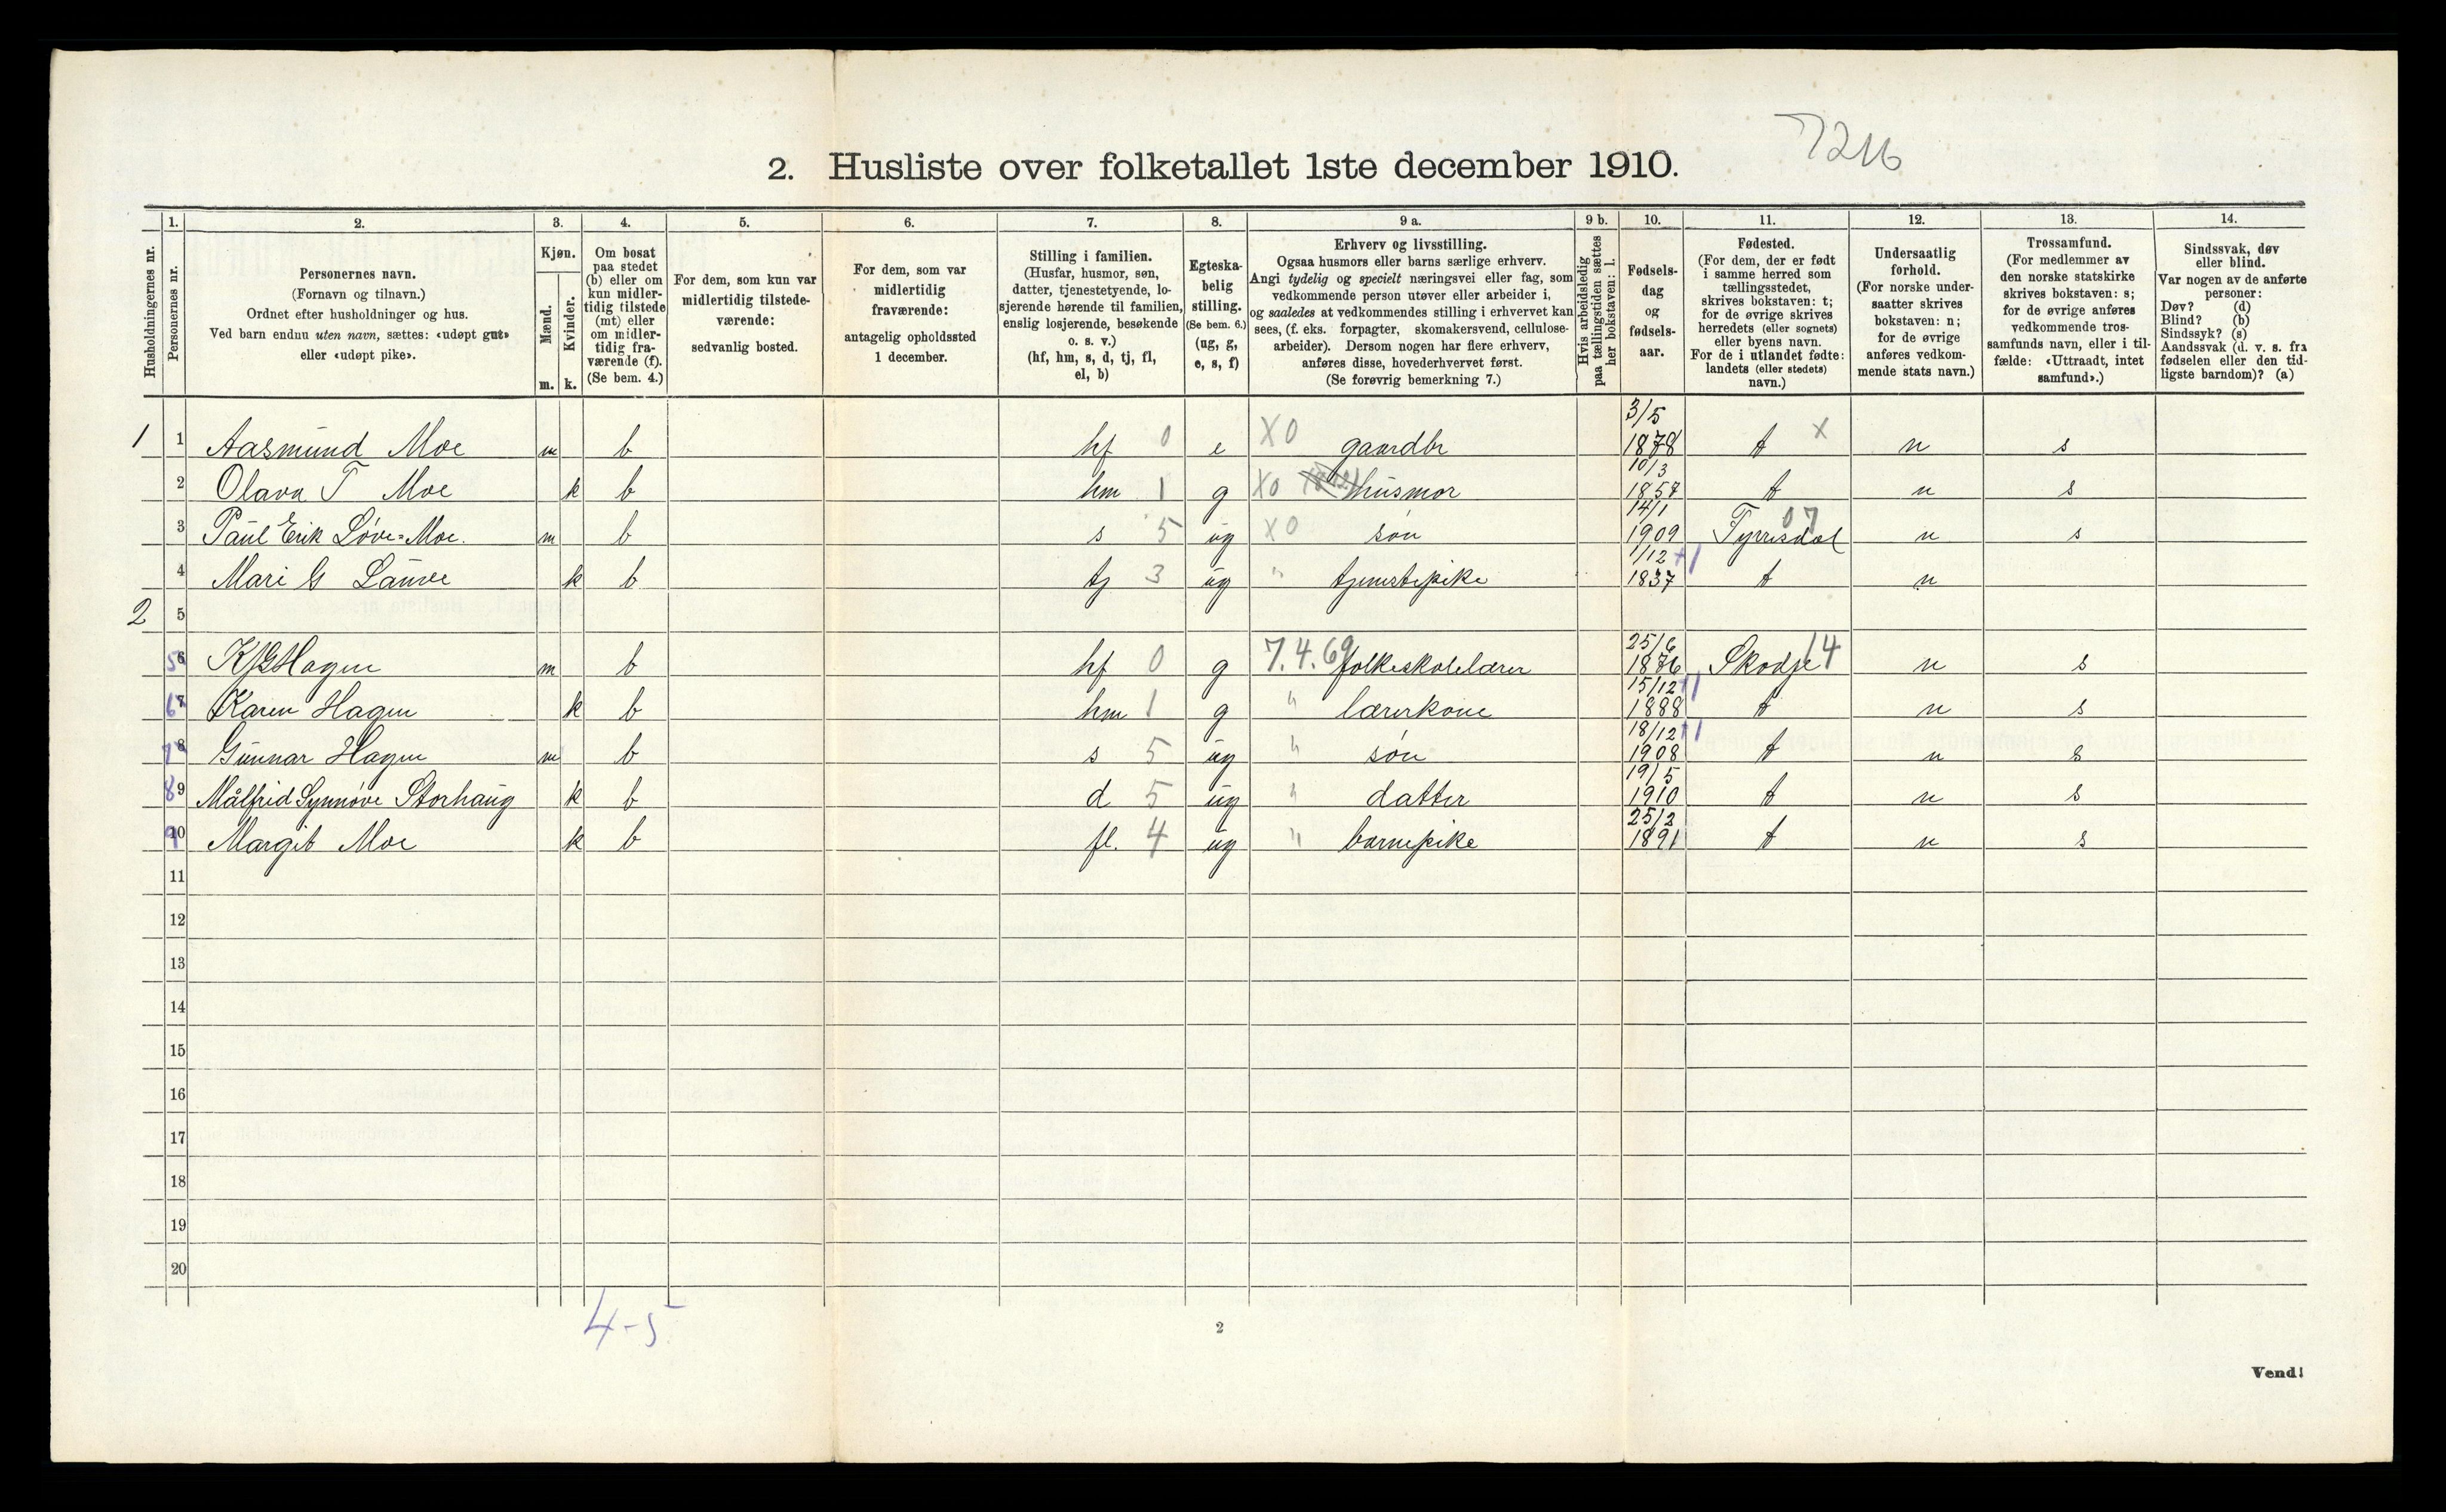 7216
2. Husliste over folketallet 1ste december 1910.
Husholdningernes nr.
1.
Personernes nr.
2.
Personernes navn.
(Fornavn og tilnavn.)
Ordnet efter husholdninger og hus.
Ved barn endnu uten navn, sættes: «udøpt gut»
eller «udøpt pike».
3.
Kjøn.
Mænd.
Kvinder.
m. k.
4.
Om bosat
paa stedet
(b) eller om
kun midler-
tidig tilstede
(mt) eller
om midler-
tidig fra-
værende (f).
(Se bem. 4.)
5.
For dem, som kun var
midlertidig tilstede-
værende:
sedvanlig bosted.
6.
For dem, som var
midlertidig
fraværende:
antagelig opholdssted
1 december.
7.
Stilling i familien.
(Husfar, husmor, søn,
datter, tjenestetyende, lo-
sjerende hørende til familien,
enslig losjerende, besøkende
o. s. v.)
(hf, hm, s, d, tj, fl,
el, b)
8.
Egteska-
belig
stilling.
(Se bem. 6.)
(ug, g,
e, s, f)
9 a.
Erhverv og livsstilling.
Ogsaa husmors eller barns særlige erhverv.
Angi tydelig og specielt næringsvei eller fag, som
vedkommende person utøver eller arbeider i,
og saaledes at vedkommendes stilling i erhvervet kan
sees, (f. eks. forpagter, skomakersvend, cellulose-
arbeider). Dersom nogen har flere erhverv,
anføres disse, hovederhvervet først.
(Se forøvrig bemerkning 7.)
9 b.
Hvis arbeidsledig
paa tællingstiden sættes
her bokstaven: l.
10.
Fødsels-
dag
og
fødsels-
aar.
11.
Fødested.
(For dem, der er født
i samme herred som
tællingsstedet,
skrives bokstaven: t;
for de øvrige skrives
herredets (eller sognets)
eller byens navn.
For de i utlandet fødte:
landets (eller stedets)
navn.)
12.
Undersaatlig
forhold.
(For norske under-
saatter skrives
bokstaven: n;
for de øvrige
anføres vedkom-
mende stats navn.)
13.
Trossamfund.
(For medlemmer av
den norske statskirke
skrives bokstaven: s;
for de øvrige anføres
vedkommende tros-
samfunds navn, eller i til-
fælde: «Uttraadt, intet
samfund».)
14.
Sindssvak, døv
eller blind.
Var nogen av de anførte
personer:
Døv? (d)
Blind? (b)
Sindssyk? (s)
Aandssvak (d. v. s. fra
fødselen eller den tid-
ligste barndom)? (a)
1 1 Aasmund Moe m b hf 0 e X0 gaardbr 3/5 1878 t X n s
2 Olava T Moe k b hm 1 g X0 husmor 10/3 1857 t n s
3 Paul Erik Løve=Moe. m b s 5 ug X0 søn 14/1 1909 Tyrrisdal 07 n s
4 Mari G Lauve k b tj 3 ug " tjenestepike 1/12 1837 +1 t n
2 5
5 6 K G Hagen m b hf 0 g 7.4.69 folkeskolelærer 25/6 1876 Skodje 14 n s
6 7 Karen Hagen k b hm 1 g " lærerkone 15/12 1888 +1 t n s
7 8 Gunnar Hagen m b s 5 ug " søn 18/12 1908 +1 t n s
8 9 Målfrid Synnøve Storhaug k b d 5 ug " datter 19/5 1910 t n s
9 10 Margit Moe k b fl. 4 ug " barnepike 25/2 1891 t n s
11
12
13
14
15
16
17
18
19
20
4-5
2
Vend!